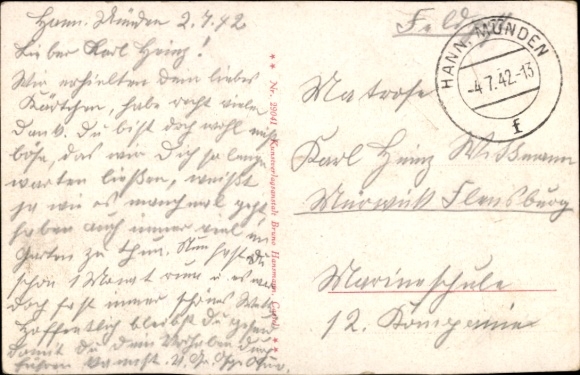 Hann. Münden 2.7.42
Lieber Karl Heinz!
Wir erhielten dein liebes
Kärtchen, habe recht vielen
Dank. Du bist doch wohl nicht
böse, das wir Dich so lange
warten ließen, weißt
ja wie es manchmal geht,
haben auch immer viel im
Garten zu tun. Nun hast du
schon 1 Monat rum u. es war
doch fast immer schönes Wetter
Hoffentlich bleibst du gesund
damit du dein Vorhaben durch
führen kannst.
** Nr. 29041 Kunstverlagsanstalt Bruno Hansmann, Cassel **
Feldpost
HANN. MÜNDEN
-4.7.42.-13
f
Matrose
Karl Heinz Wißmann
Mürwick Flensburg
Marineschule
12. Kompanie